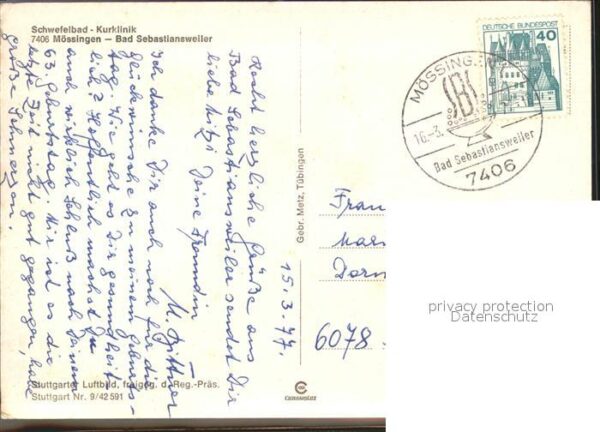 Schwefelbad - Kurklinik
7406 Mössingen – Bad Sebastiansweiler
Recht herzliche Grüße aus
Bad Sebastiansweiler sendet Dir
liebe Mitzi Deine Freundin
M. Bittner
Ich danke Dir auch noch für die
Glückwünsche zu meinem Geburts-
tag. Wie geht es Dir gesundheit-
lich? Hoffentlich machst Du
auch wirklich Schluß nach Deinem
63. Geburtstag. Mir ist es die
letzte Zeit nicht gut gegangen, habe
große Schmerzen.
15.3.77.
Stuttgarter Luftbild, freigeg. d. Reg.-Präs.
Stuttgart Nr. 9/42591
Gebr. Metz, Tübingen
DEUTSCHE BUNDESPOST
40
MÖSSINGEN
SBS
16.-3.
Bad Sebastiansweiler
7406
Frau
Mar
Dorn
6078
privacy protection
Datenschutz